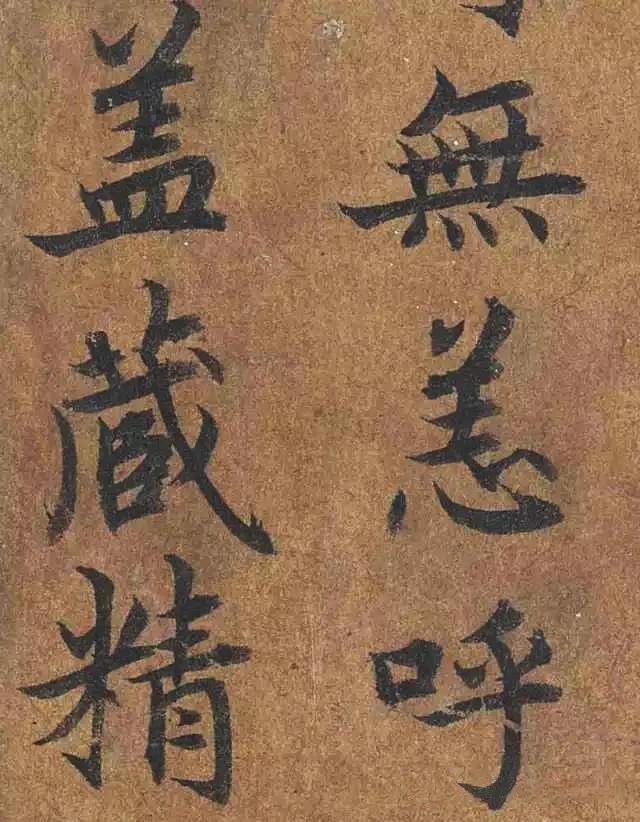 無恙呼
盖蔵精